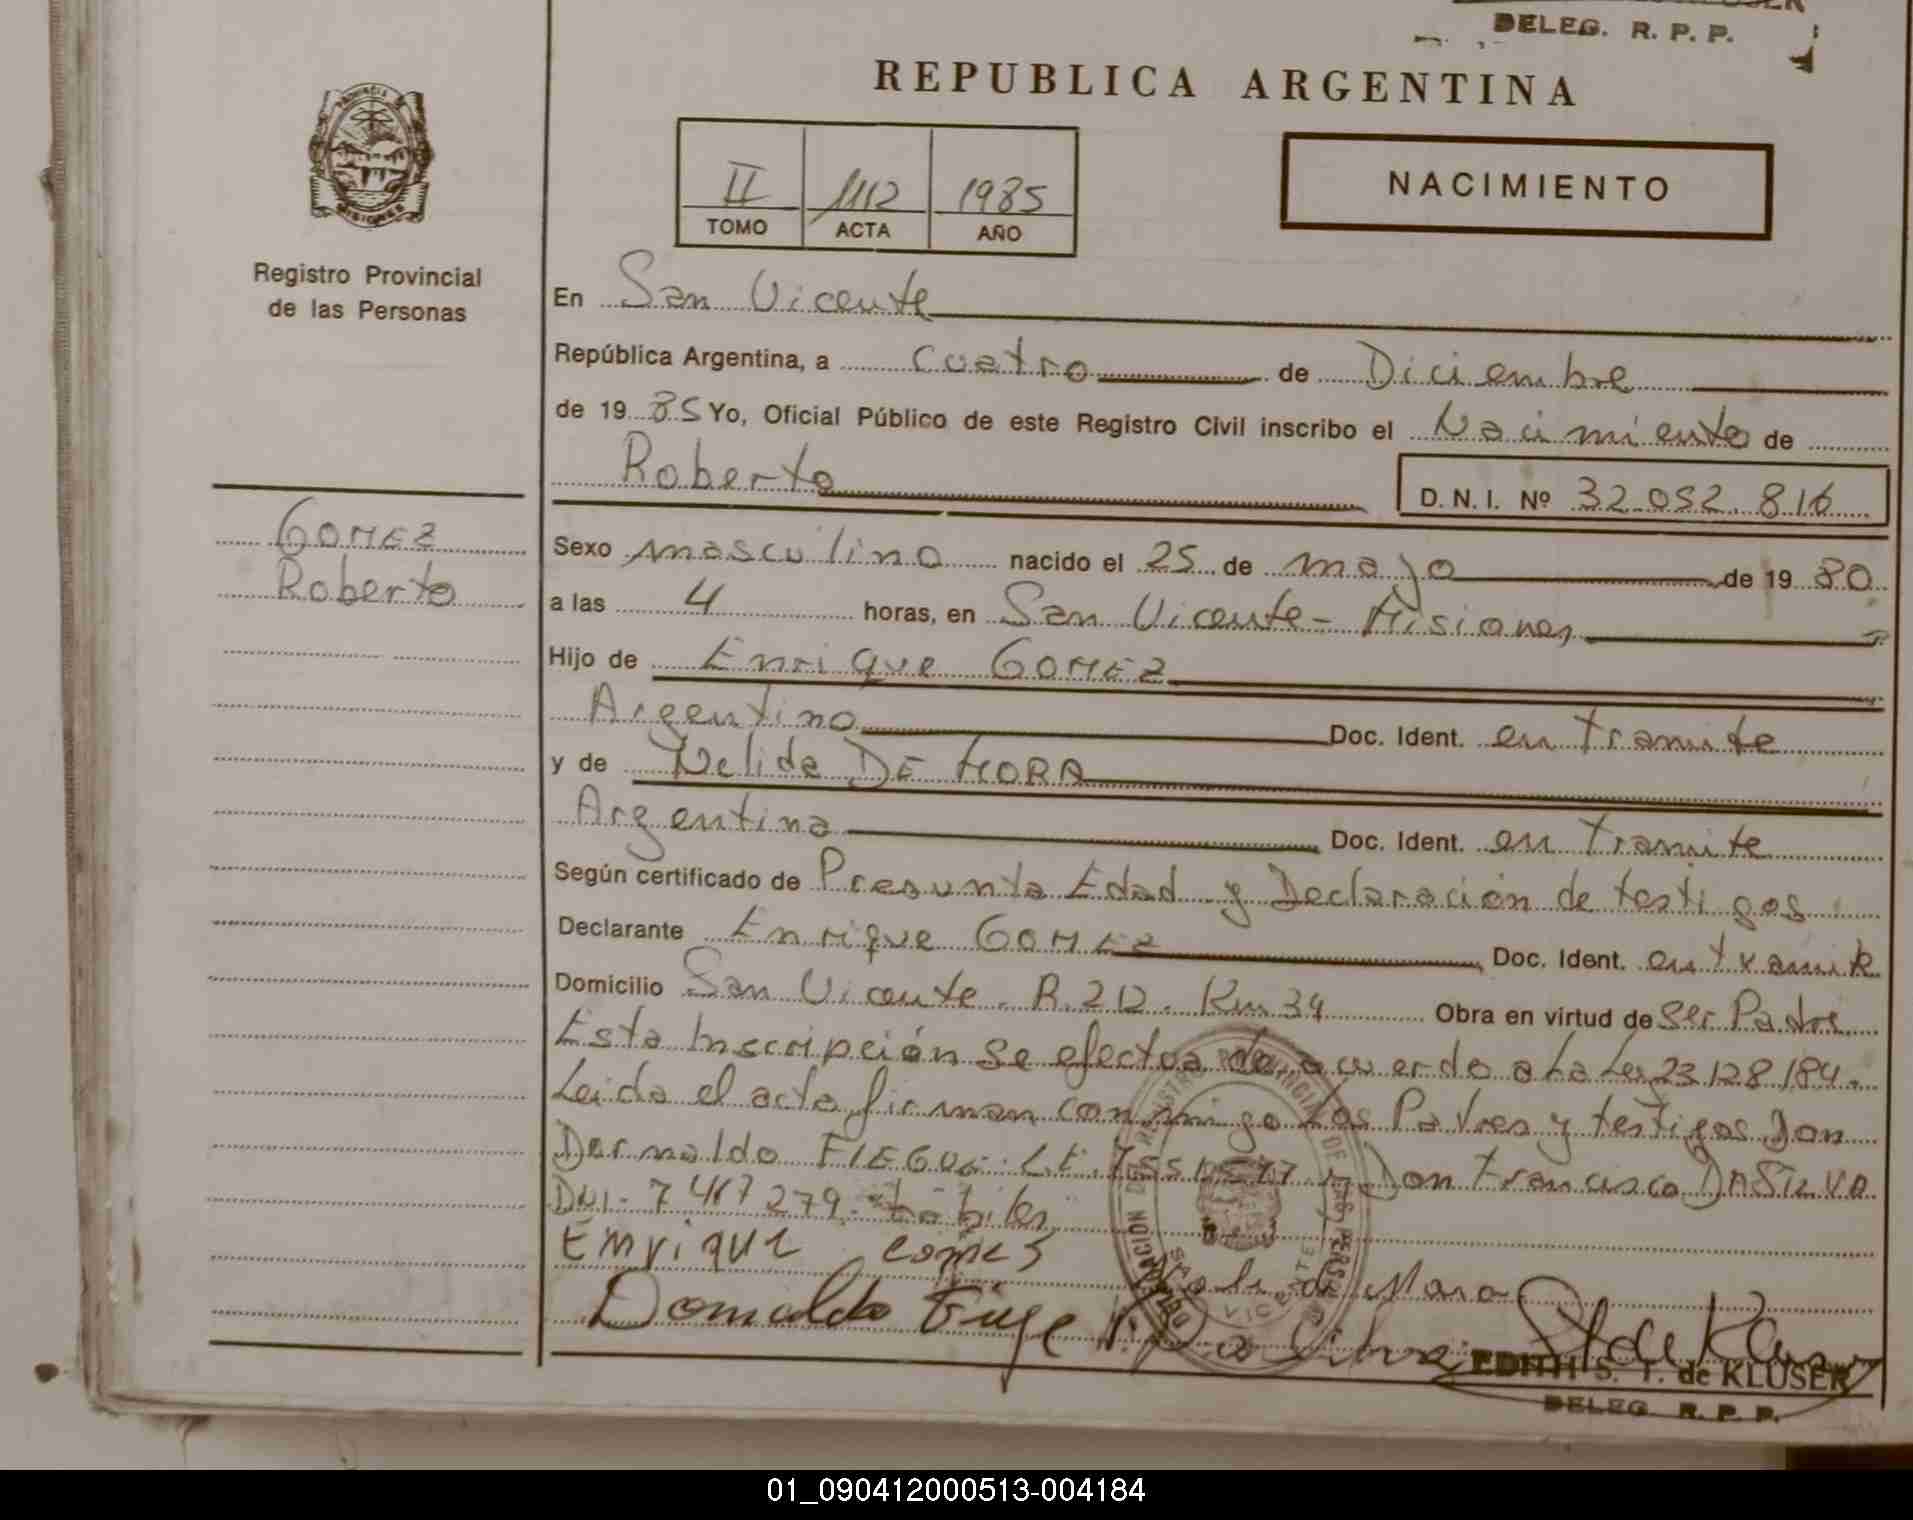 DELEG. R. P. P.
REPUBLICA ARGENTINA
II 1112 1985
TOMO ACTA AÑO
NACIMIENTO
PROVINCIA DE
MISIONES
Registro Provincial
de las Personas
En San Vicente
República Argentina, a cuatro de Diciembre
de 19 85 Yo, Oficial Público de este Registro Civil inscribo el Nacimiento de
Roberto D. N. I. Nº 32.052.816
GOMEZ
Roberto
Sexo masculino nacido el 25 de mayo de 19 80
a las 4 horas, en San Vicente - Misiones
Hijo de Enrique GOMEZ
Argentino Doc. Ident. en tramite
y de Nelida DE MORA
Argentina Doc. Ident. en tramite
Según certificado de Presunta Edad y Declaración de testigos
Declarante Enrique GOMEZ Doc. Ident. en tramite
Domicilio San Vicente. R.212. Km 34 Obra en virtud de ser Padre
Esta Inscripción se efectua de acuerdo a La Ley 23128/84.
Leida el acta firman conmigo Los Padres y testigos Don
Dermaldo L.E. Don Francisco DASILVA
DNI- 7417279.
Enrique comes
de Mora
Domaldo
EDITH S. T. de KLUSER
DELEG. R. P. P.
01_090412000513-004184